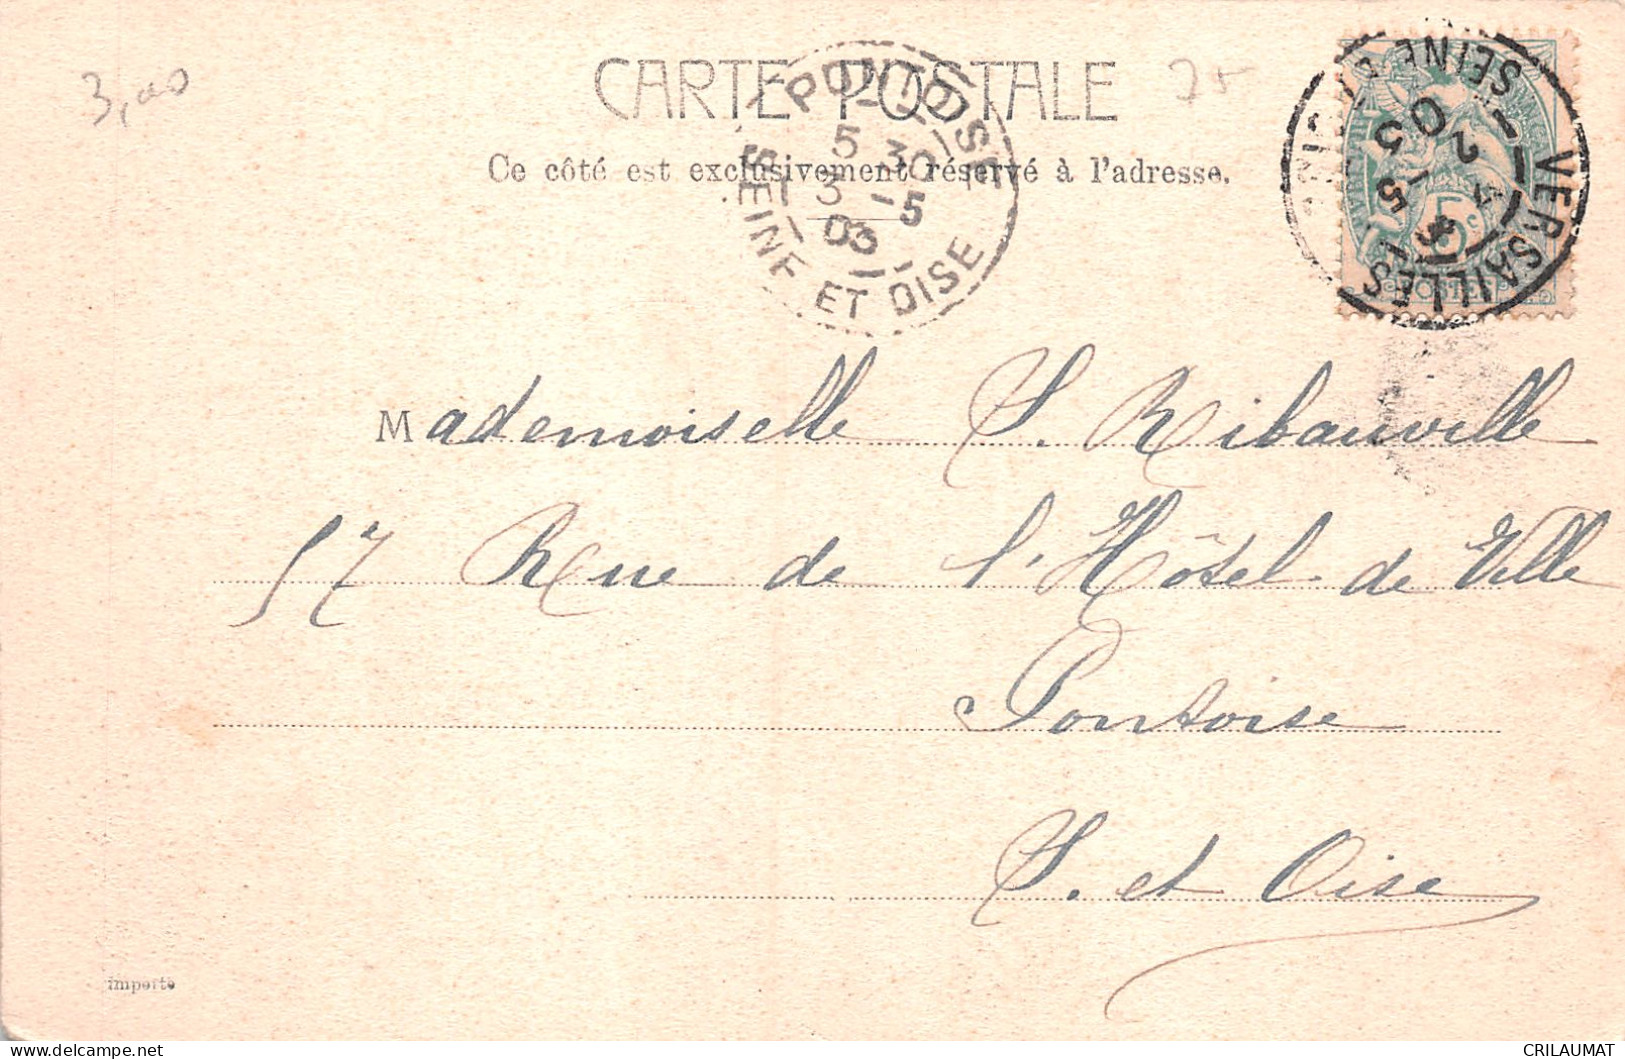 3,00
CARTE POSTALE
75
Ce côté est exclusivement réservé à l'adresse.
PONTOISE
5 30
3 -5
03
SEINE ET OISE
VERSAILLES
SEINE
2 -5
03
5c
POSTES
Mademoiselle S. Ribauville
57 Rue de l'Hôtel de Ville
Pontoise
S. et Oise
importe
CRILAUMAT